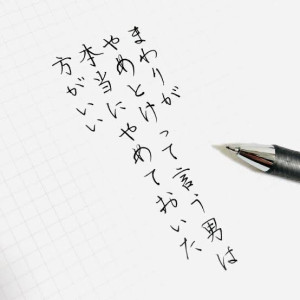 まわりが
やめとけって言う男は
本当にやめておいた
方がいい